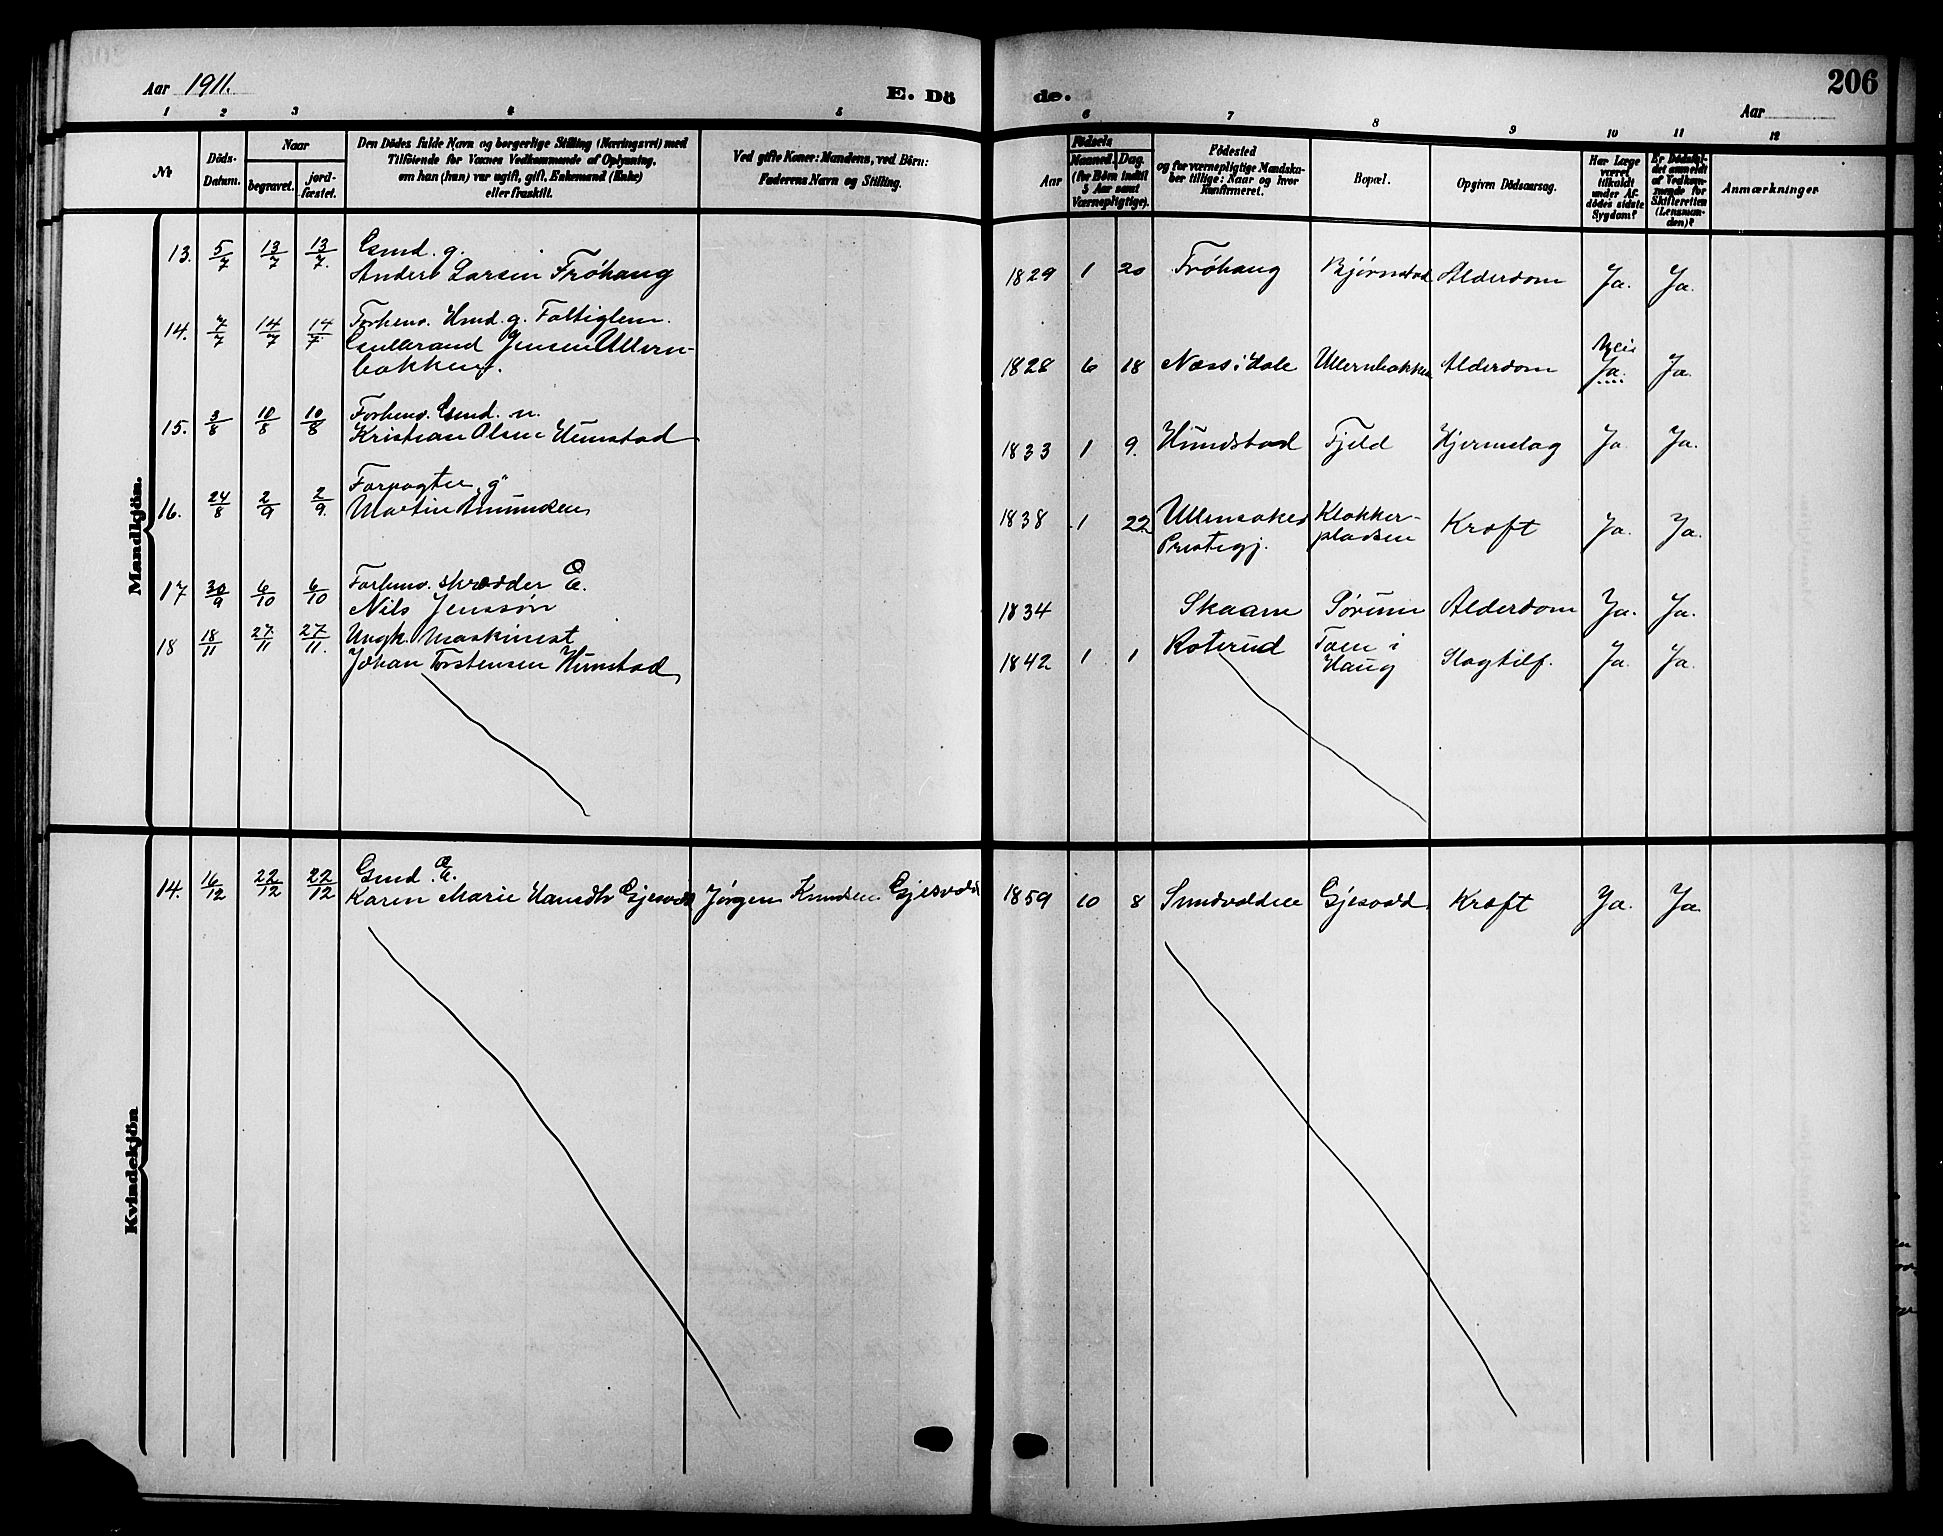 Aar 1911.
E. Dö
de.
Aar
206
1 2 3 4 5
6 7 8 9 10 11 12
No
Döds-
Datum.
Naar
begravet.
jord-
fæstet.
Den Dödes fulde Navn og borgerlige Stilling (Næringsvei) med
Tilföiende for Voxnes Vedkommende af Oplysning,
om han (hun) var ugift, gift, Enkemand (Enke)
eller fraskilt.
Ved gifte Koner: Mandens, ved Börn:
Faderens Navn og Stilling.
Födsels
Aar
Maaned. Dag.
(for Börn indtil
5 Aar samt
Værnepligtige).
Födested
og for værnepligtige Mandska-
ber tillige: Naar og hvor
konfirmeret.
Bopæl.
Opgiven Dödsaarsag.
Har Læge
været
tilkaldt
under Af-
dödes sidste
Sygdom?
Er Dödsfal-
det anmeldt
af Vedkom-
mende for
Skifteretten
(Lensman-
den)?
Anmærkninger
Mandkjön.
13. 5/7 13/7 13/7. Gmd. g.
Anders Larsen Fröhaug
1829 1 20 Fröhaug Bjørnstad Alderdom Ja. Ja.
14. 7/7 14/7 14/7. Forhenv. Hmd. g. Fattiglem.
Gulbrand Jensen Ullern-
bakken.
Nei
1828 6 18 Næss i Hole Ullernbakken Alderdom Ja. Ja.
15. 3/8 10/8 10/8 Forhenv. Gmd. u.
Kristian Olsen Hunstad
1833 1 9. Hundstad Fjeld Hjerneslag Ja Ja.
16. 24/8 2/9 2/9. Forpagter g
Martin Amundsen
1838 1 22 Ullensaker Klokker- Kræft Ja. Ja.
Prestegj. pladsen
17 30/9 6/10 6/10 Forhenv. skrædder E.
Nils Jenssøn
1834 Skaane Sørum Alderdom Ja. Ja.
18 18/11 27/11 27/11. Ungk. Maskinist
Johan Torstensen Hunstad
1842 1 1 Roterud Toen i Slagtilf. Ja. Ja.
Haug
Kvindekjön
14. 16/12 22/12 22/12 Gmd. E.
Karen Marie Hansdtr Gjesvold Jörgen Knudsen Gjesvold
1859 10 8 Sundvolden Gjesvold Kræft Ja. Ja.